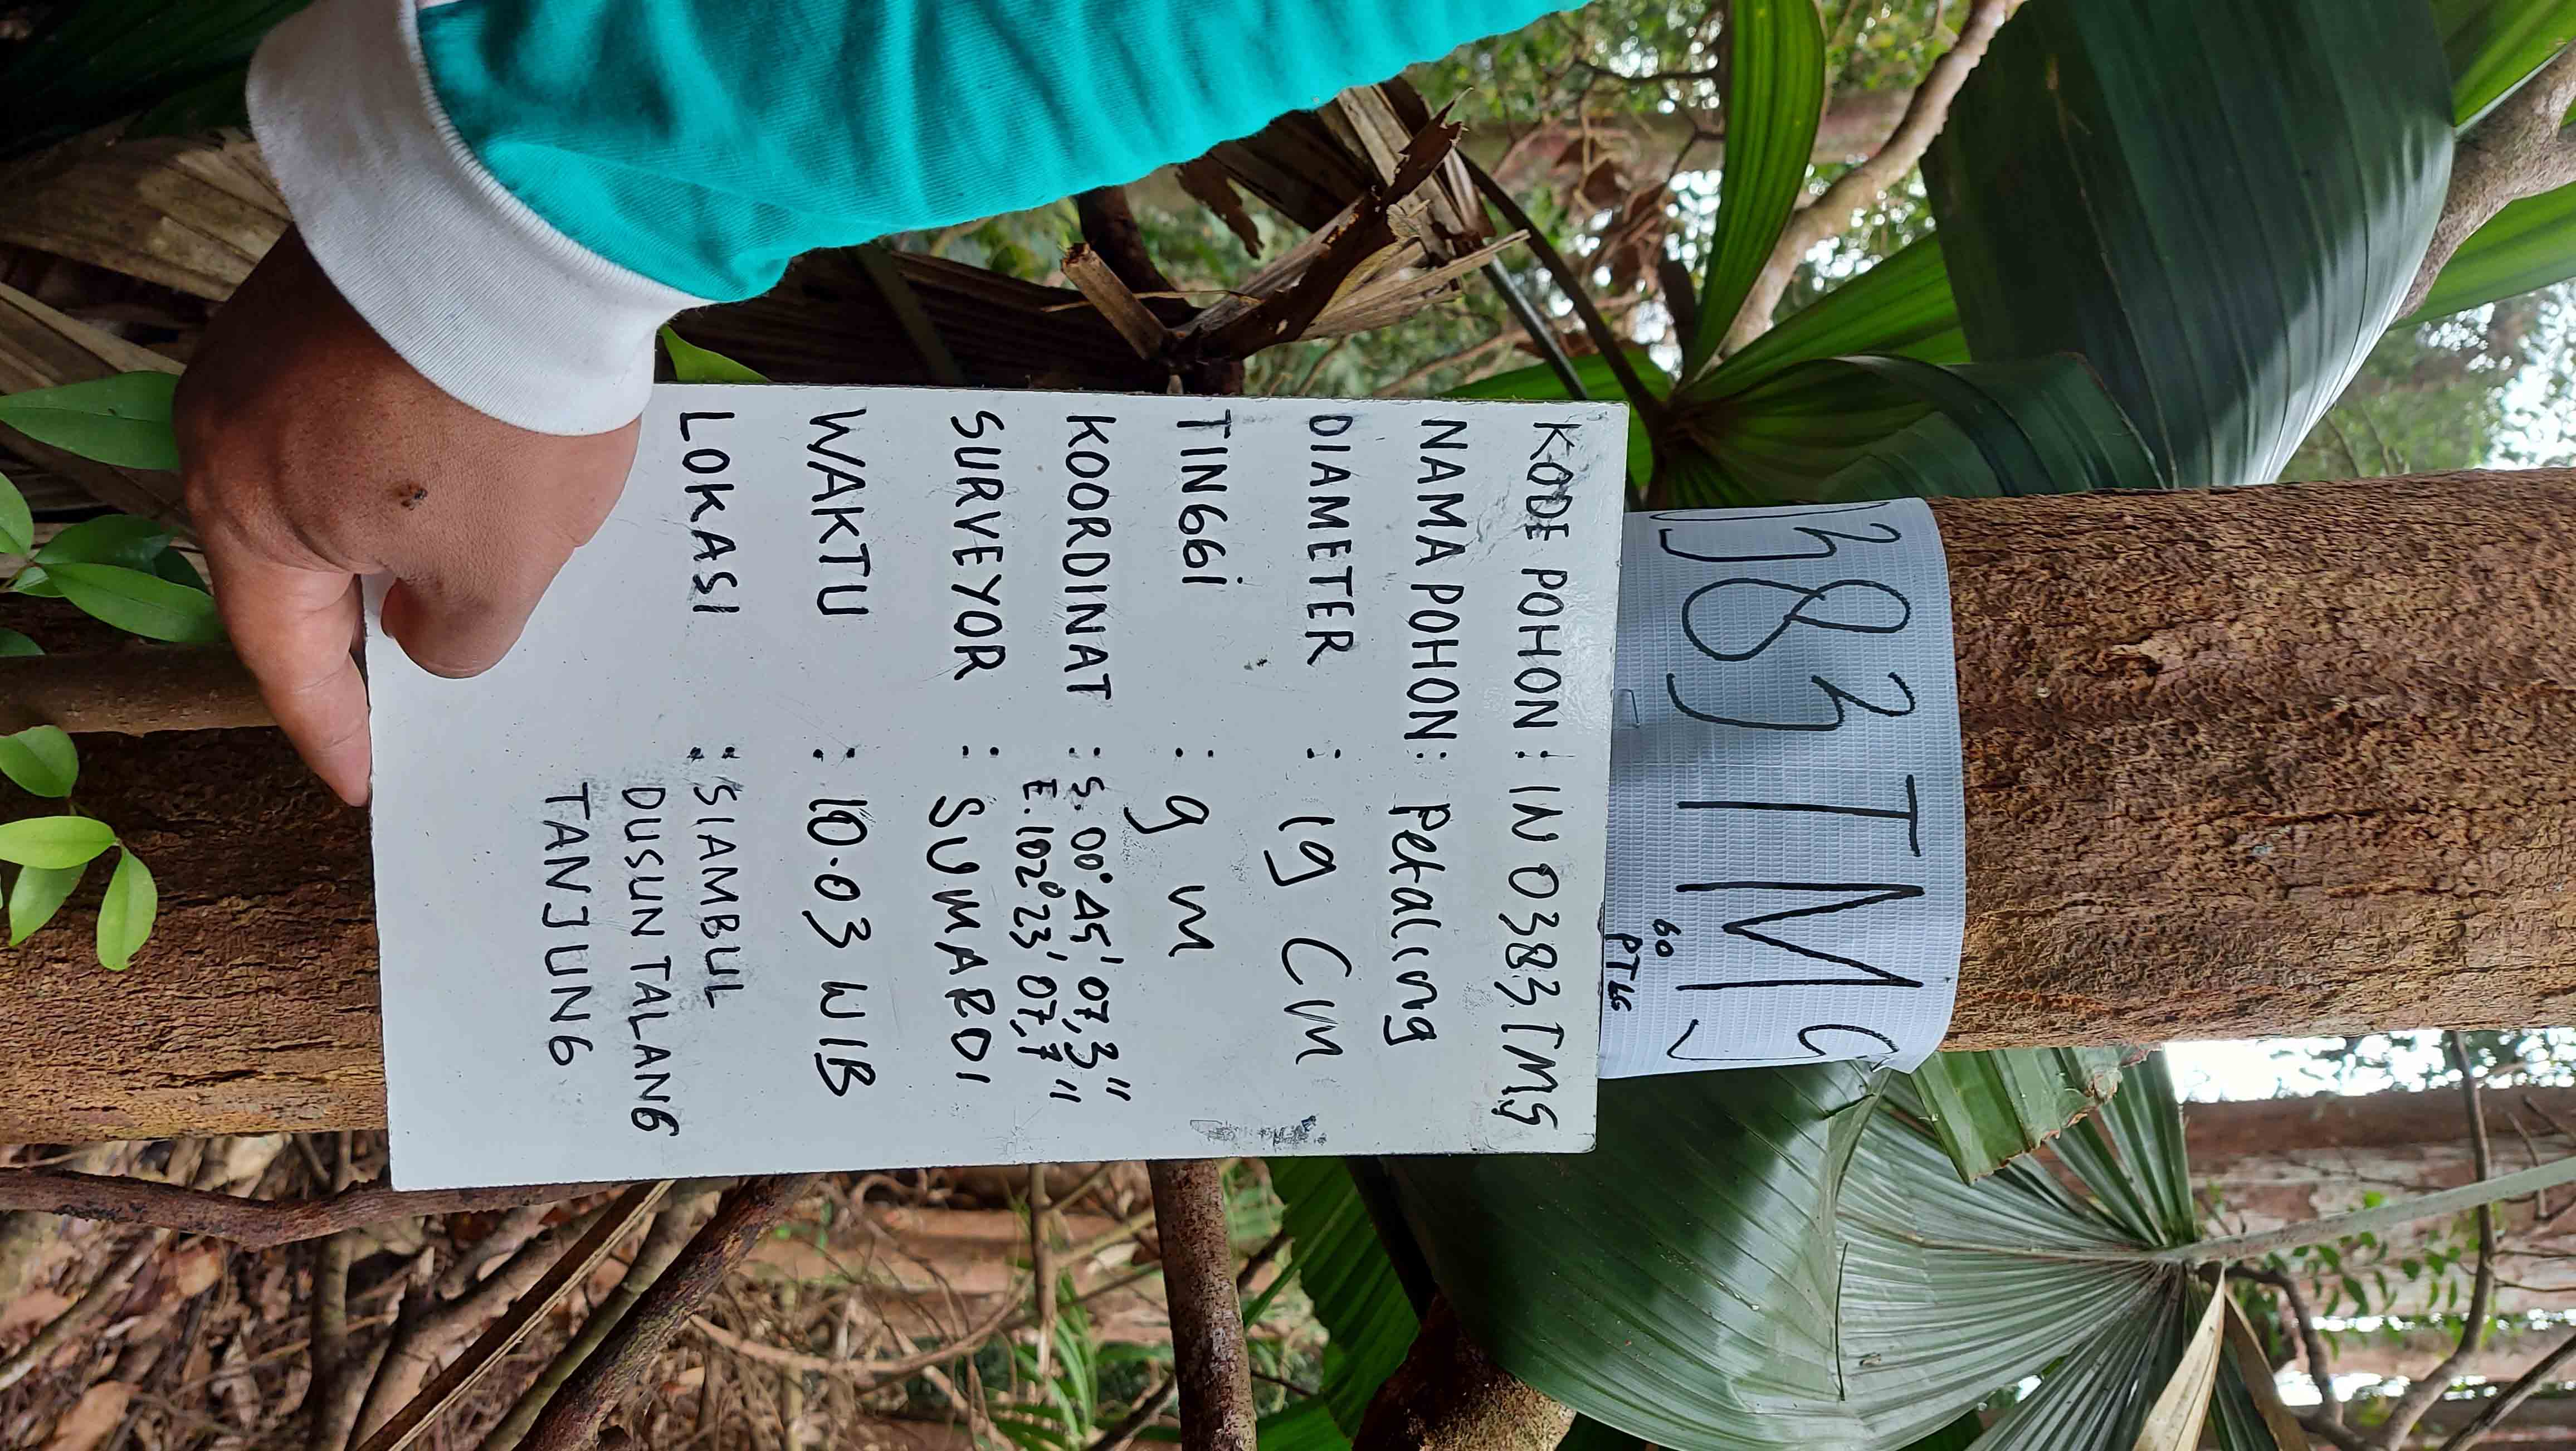 383TMS
60
PTLG
KODE POHON : IN 0383TMS
NAMA POHON : Petaling
DIAMETER : 19 CM
TINGGI : 9 m
KOORDINAT : S. 00° 45' 07,3"
E. 102° 23' 07,7"
SURVEYOR : SUMARDI
WAKTU : 10.03 WIB
LOKASI : SIAMBUL
DUSUN TALANG
TANJUNG